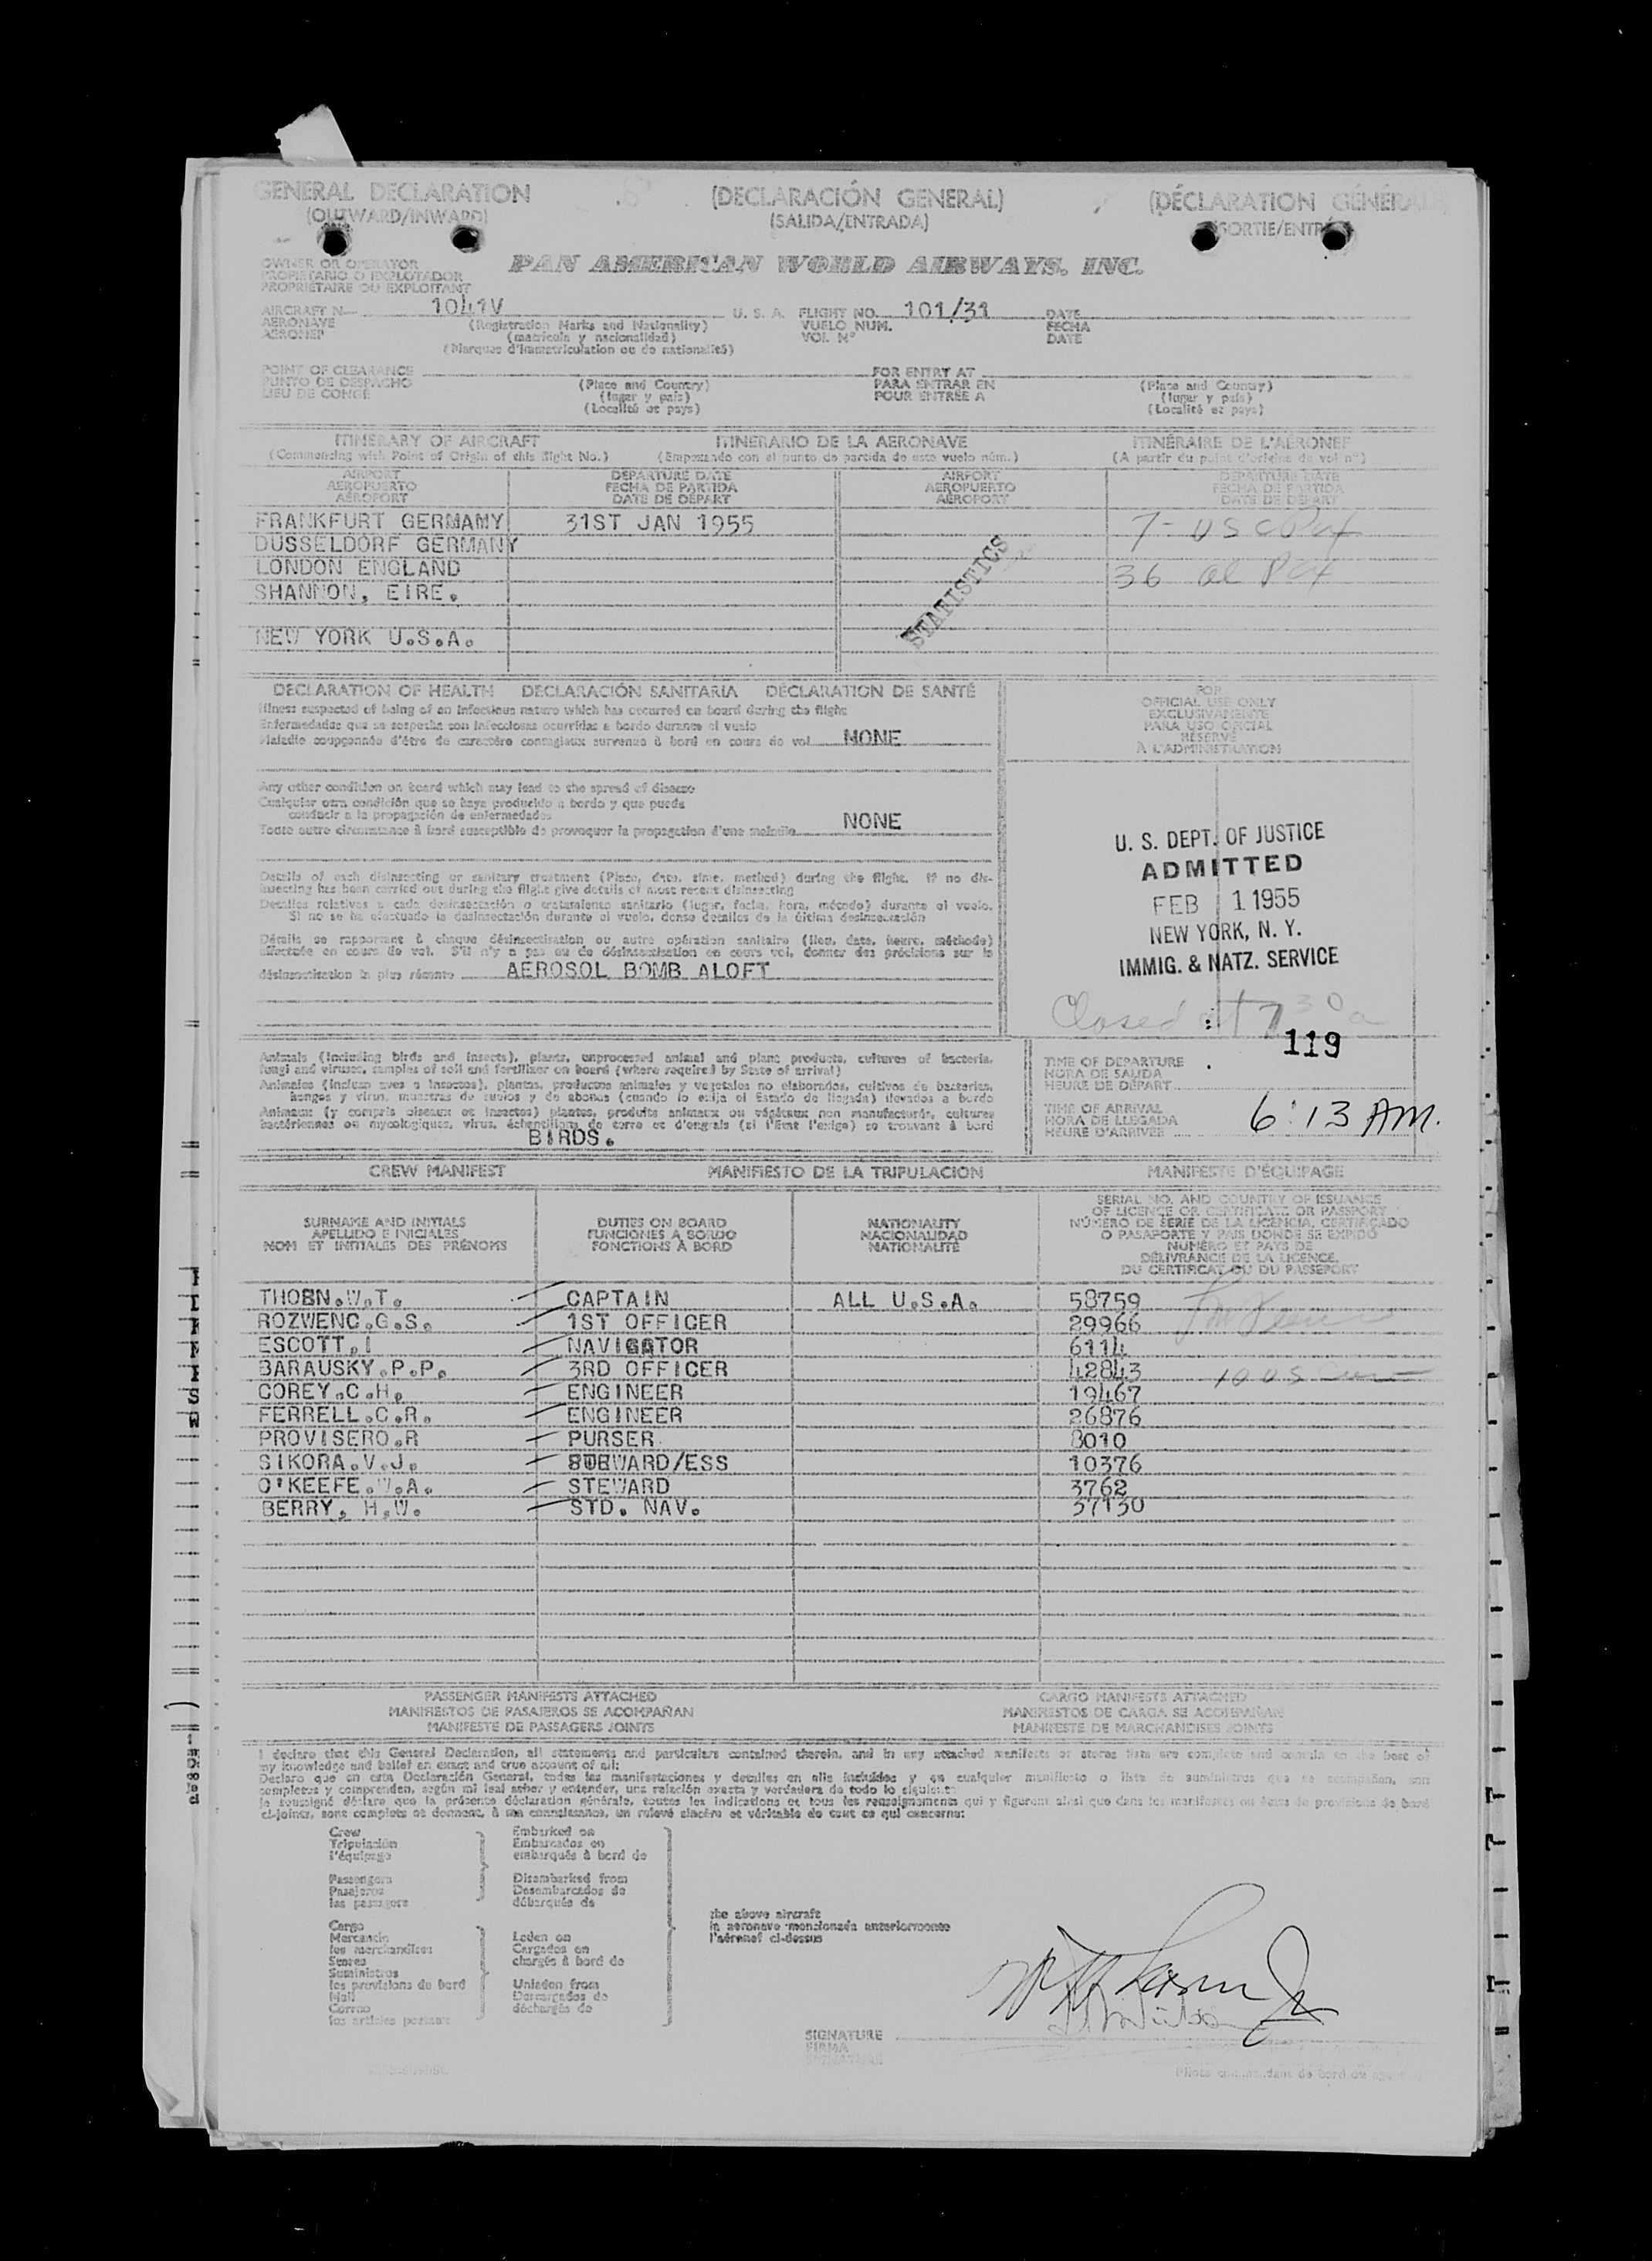 GENERAL DECLARATION (DECLARACIÓN GENERAL) (DÉCLARATION GÉNÉRALE)
(OUTWARD/INWARD) (SALIDA/ENTRADA) SORTIE/ENTRÉE
OWNER OR OPERATOR
PROPIETARIO O EXPLOTADOR
PROPRIÉTAIRE OU EXPLOITANT
PAN AMERICAN WORLD AIRWAYS, INC.
AIRCRAFT N 1041V U. S. A. FLIGHT NO. 101/31 DATE
AERONAVE (Registration Marks and Nationality) VUELO NUM. FECHA
AERONEF (matricula y nacionalidad) VOL Nº DATE
(Marques d'immatriculation ou de nationalité)
POINT OF CLEARANCE FOR ENTRY AT
PUNTO DE DESPACHO (Place and Country) PARA ENTRAR EN (Place and Country)
LIEU DE CONGE (lugar y país) POUR ENTRÉE A (lugar y país)
(Localité et pays) (Localité et pays)
ITINERARY OF AIRCRAFT ITINERARIO DE LA AERONAVE ITINÉRAIRE DE L'AÉRONEF
(Commencing with Point of Origin of this flight No.) (Empezando con el punto de partida de este vuelo núm.) (A partir du point d'origine du vol nº)
AIRPORT DEPARTURE DATE AIRPORT DEPARTURE DATE
AEROPUERTO FECHA DE PARTIDA AEROPUERTO FECHA DE PARTIDA
AÉROPORT DATE DE DÉPART AÉROPORT DATE DE DÉPART
FRANKFURT GERMANY 31ST JAN 1955 7-
DUSSELDORF GERMANY
LONDON ENGLAND 36
SHANNON, EIRE.
STATISTICS
NEW YORK U.S.A.
DECLARATION OF HEALTH DECLARACIÓN SANITARIA DÉCLARATION DE SANTÉ
Illness suspected of being of an infectious nature which has occurred on board during the flight
Enfermedades que se sospecha son infecciosas ocurridas a bordo durante el vuelo
Maladie soupçonnée d'être de caractère contagieux survenue à bord en cours de vol NONE
Any other condition on board which may lead to the spread of disease
Cualquier otra condición que se haya producido a bordo y que pueda
conducir a la propagación de enfermedades
Toute autre circonstance à bord susceptible de provoquer la propagation d'une maladie NONE
Details of each disinsecting or sanitary treatment (Place, date, time, method) during the flight. If no dis-
insecting has been carried out during the flight give details of most recent disinsecting
Detalles relativos a cada desinsectación o tratamiento sanitario (lugar, fecha, hora, método) durante el vuelo.
Si no se ha efectuado la desinsectación durante el vuelo, dense detalles de la última desinsectación
Détails se rapportant à chaque désinsectisation ou autre opération sanitaire (lieu, date, heure, méthode)
effectuée en cours de vol. S'il n'y a pas eu de désinsectisation en cours vol, donner des précisions sur la
désinsectisation la plus récente AEROSOL BOMB ALOFT
FOR
OFFICIAL USE ONLY
EXCLUSIVAMENTE
PARA USO OFICIAL
RÉSERVÉ
À L'ADMINISTRATION
U. S. DEPT. OF JUSTICE
ADMITTED
FEB 1 1955
NEW YORK, N. Y.
IMMIG. & NATZ. SERVICE
Closed at 7 30 a
119
Animals (including birds and insects), plants, unprocessed animal and plant products, cultures of bacteria,
fungi and viruses, samples of soil and fertilizer on board (where required by State of arrival)
Animales (incluso aves o insectos), plantas, productos animales y vegetales no elaborados, cultivos de bacterias,
hongos y virus, muestras de suelos y de abonos (cuando lo exija el Estado de llegada) llevados a bordo
Animaux (y compris oiseaux et insectes) plantes, produits animaux ou végétaux non manufacturés, cultures
bactériennes ou mycologiques, virus, échantillons de terre et d'engrais (si l'État l'exige) se trouvant à bord
BIRDS.
TIME OF DEPARTURE
HORA DE SALIDA
HEURE DE DÉPART
TIME OF ARRIVAL
HORA DE LLEGADA
HEURE D'ARRIVÉE 6:13 AM.
CREW MANIFEST MANIFIESTO DE LA TRIPULACION MANIFESTE D'ÉQUIPAGE
SURNAME AND INITIALS
APELLIDO E INICIALES
NOM ET INITIALES DES PRÉNOMS
DUTIES ON BOARD
FUNCIONES A BORDO
FONCTIONS À BORD
NATIONALITY
NACIONALIDAD
NATIONALITÉ
SERIAL NO. AND COUNTRY OF ISSUANCE
OF LICENCE OR CERTIFICATE OR PASSPORT
NÚMERO DE SERIE DE LA LICENCIA, CERTIFICADO
O PASAPORTE Y PAIS DONDE SE EXPIDÓ
NUMÉRO ET PAYS DE
DÉLIVRANCE DE LA LICENCE,
DU CERTIFICAT OU DU PASSEPORT
THOEN.W.T. CAPTAIN ALL U.S.A. 58759
ROZWENC.G.S. 1ST OFFICER 29966
ESCOTT.I NAVIGATOR 6114
BARAUSKY.P.P. 3RD OFFICER 42843
COREY.C.H. ENGINEER 19467
FERRELL.C.R. ENGINEER 26876
PROVISERO.R PURSER 8010
SIKORA.V.J. WARD/ESS 10376
O'KEEFE.W.A. STEWARD 3762
BERRY, H.W. STD. NAV. 37130
PASSENGER MANIFESTS ATTACHED CARGO MANIFESTS ATTACHED
MANIFIESTOS DE PASAJEROS SE ACOMPAÑAN MANIFIESTOS DE CARGA SE ACOMPAÑAN
MANIFESTE DE PASSAGERS JOINTS MANIFESTE DE MARCHANDISES JOINTS
I declare that this General Declaration, all statements and particulars contained therein, and in any attached manifests or stores lists are complete and contain to the best of
my knowledge and belief an exact and true account of all:
Declaro que en esta Declaración General, todas las manifestaciones y detalles en ella incluidos y en cualquier manifiesto o lista de suministros que se acompañan, son
completos y comprenden, según mi leal saber y entender, una relación exacta y verdadera de todo lo siguiente:
Je soussigné déclare que la présente déclaration générale, toutes les indications et tous les renseignements qui y figurent ainsi que dans les manifestes ou listes de provisions de bord
ci-joints, sont complets et donnent, à ma connaissance, un relevé sincère et véritable de tout ce qui concerne:
Crew
Tripulación
l'équipage
Passengers
Pasajeros
les passagers
Cargo
Mercancía
les marchandises
Stores
Suministros
les provisions de bord
Mail
Correo
les articles postaux
Embarked on
Embarcados en
embarqués à bord de
Disembarked from
Desembarcados de
débarqués de
Laden on
Cargados en
chargés à bord de
Unladen from
Descargados de
déchargés de
the above aircraft
la aeronave mencionada anteriormente
l'aéronef ci-dessus
SIGNATURE
FIRMA